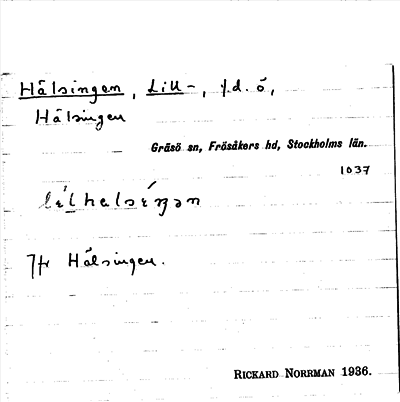 Hälsingen, Lill-, f.d. ö,
Hälsingen
Gräsö sn, Frösåkers hd, Stockholms län.
1037
Hälsingen.
RICKARD NORRMAN 1936.